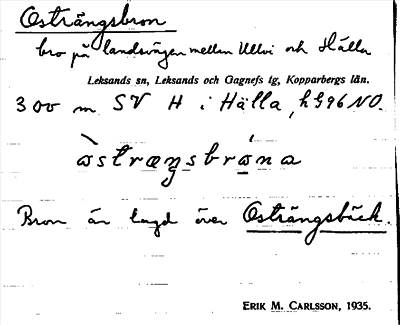 Osträngsbron
bro på landsvägen mellan Ullvi och Hälla
Leksands sn, Leksands och Gagnefs tg, Kopparbergs län.
300 m SV H i Hälla, h G96 NO.
òstræŋsbróna
Bron är lagd över Osträngsbäck.
ERIK M. CARLSSON, 1935.